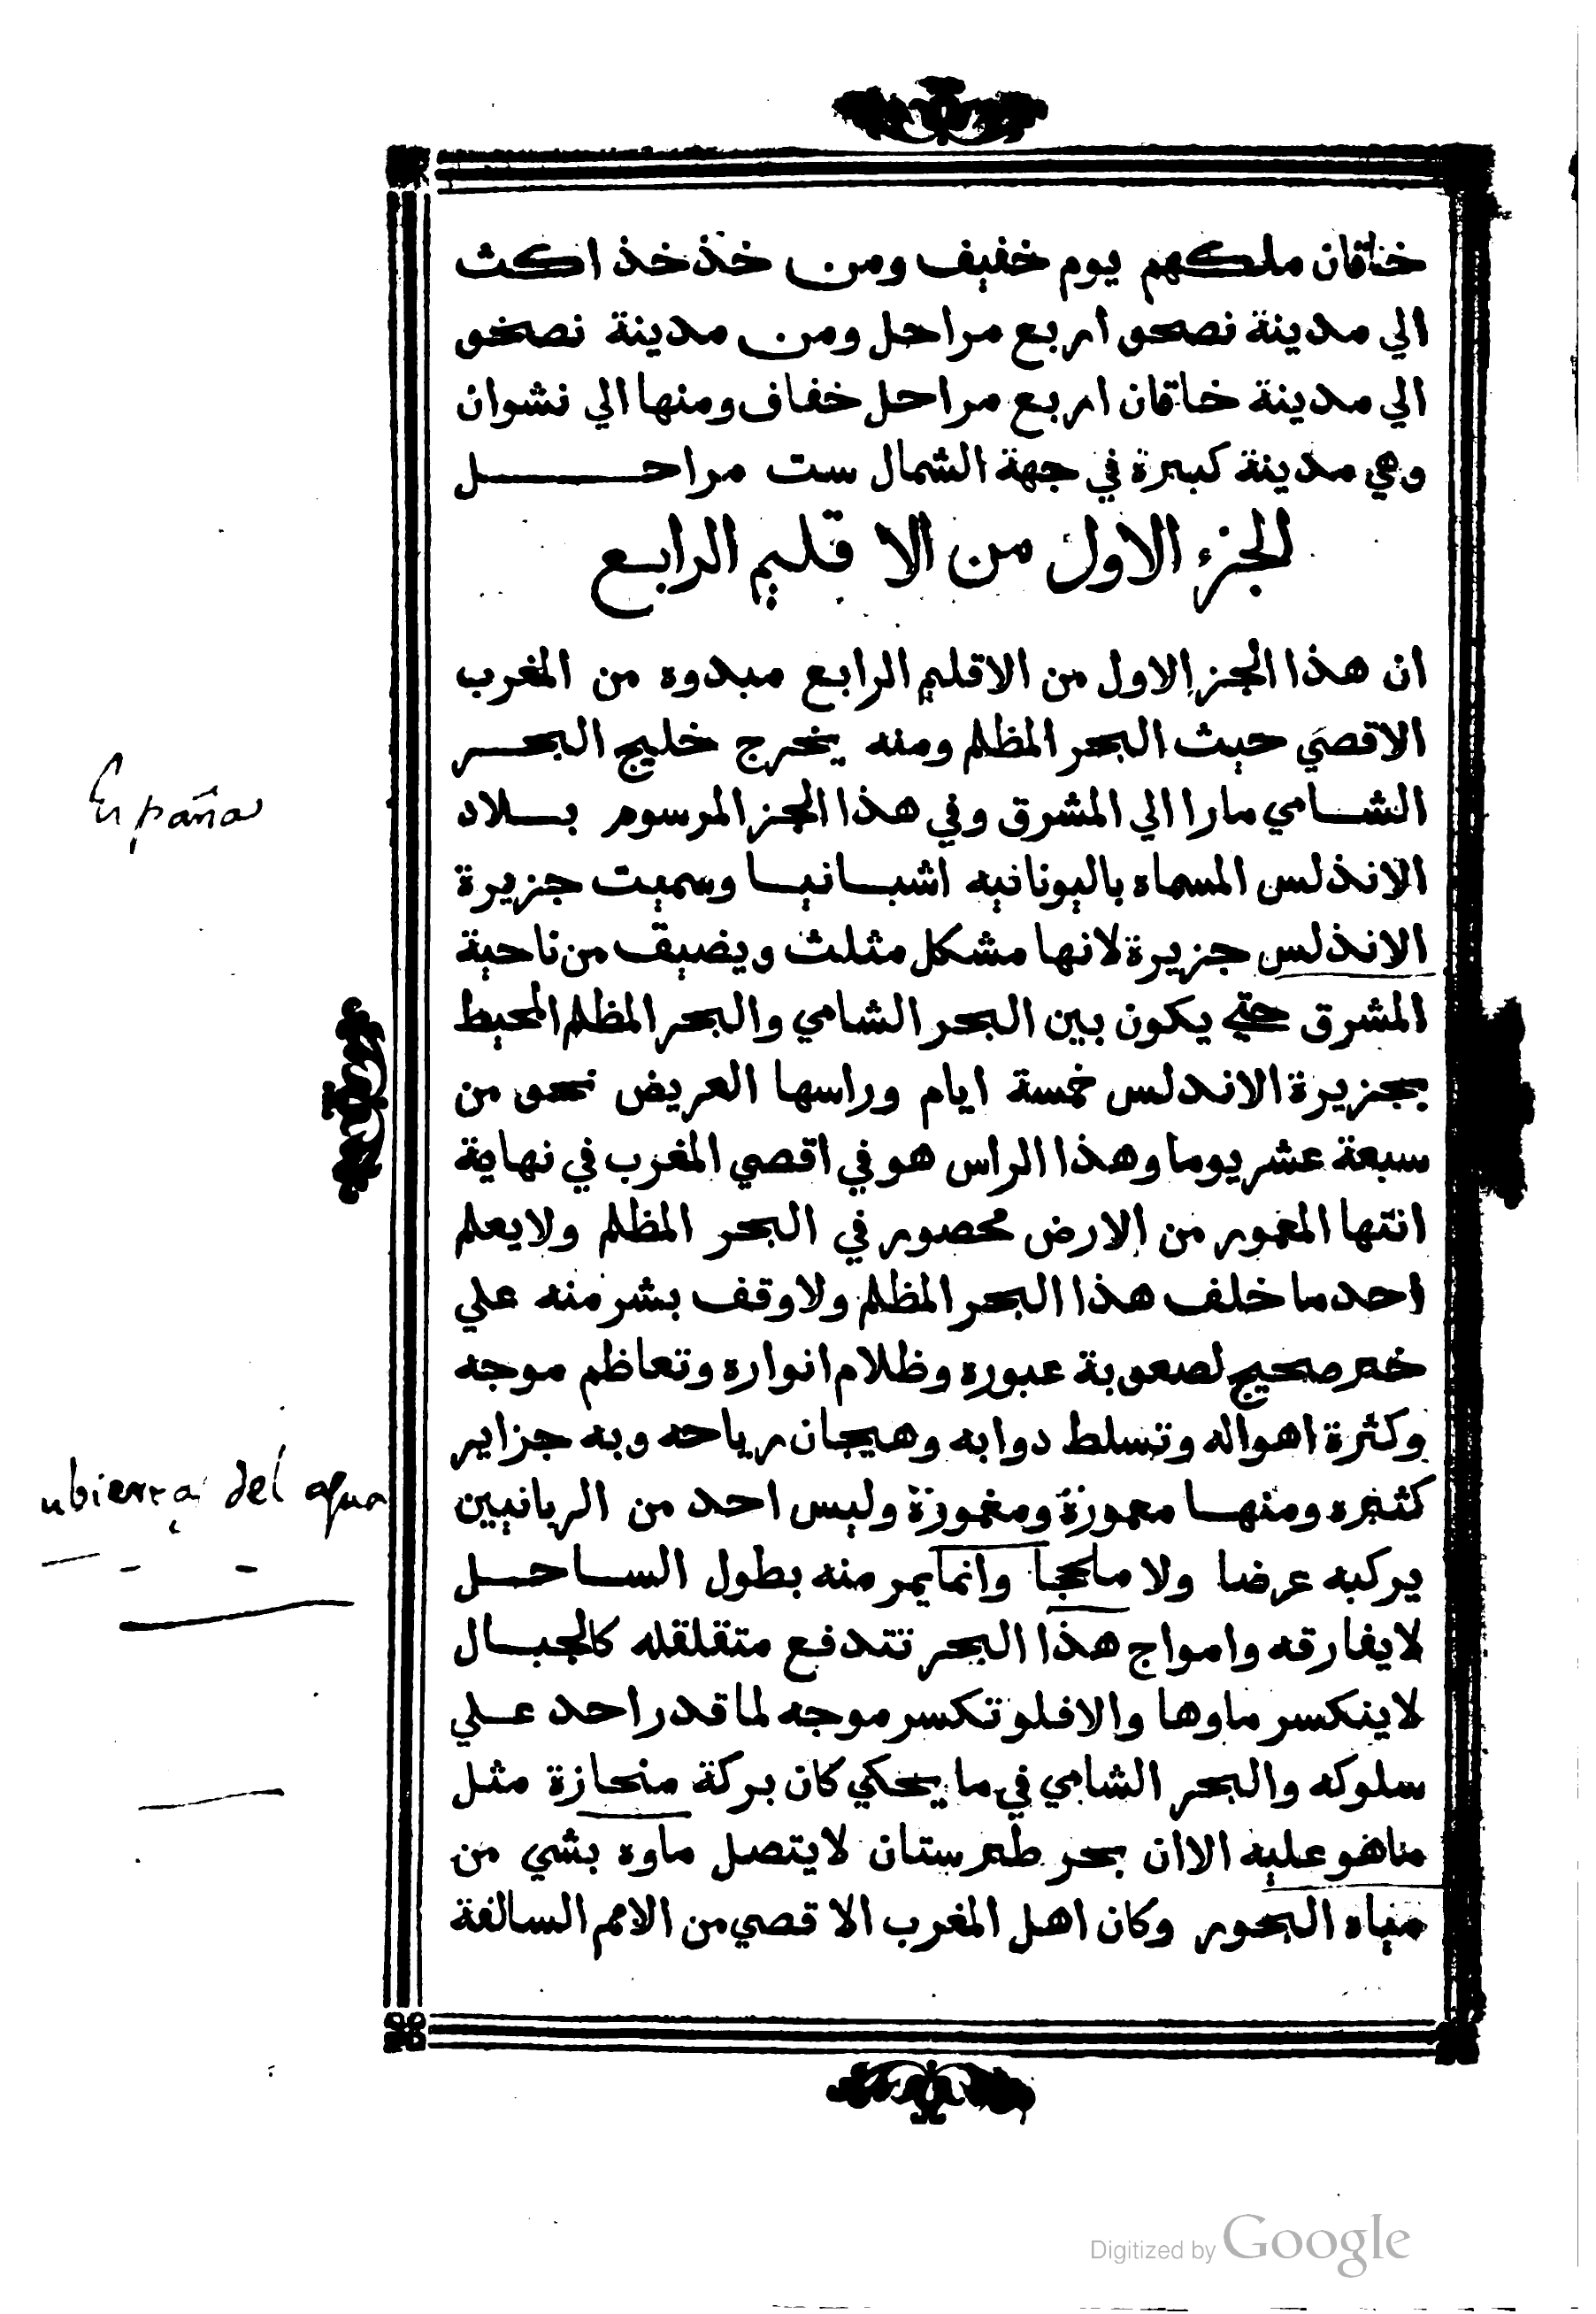 خناقان ملكهم يوم خفيف ومن خذخذ اكث
الي مدينة نصحو اربع مراحل ومن مدينة نصخو
الي مدينة خاقان اربع مراحل خفاف ومنها الي نشوان
وهي مدينة كبيرة في جهة الشمال ست مراحل
الجزء الاول من الاقليم الرابع
ان هذا الجز الاول من الاقليم الرابع مبدوه من المغرب
الاقصي حيث البحر المظلم ومنه يخرج خليج البحر
الشامي مارا الي المشرق وفي هذا الجز المرسوم بلاد
España
الانذلس المسماه باليونانيه اشبانيا وسميت جزيرة
الانذلس جزيرة لانها مشكل مثلث ويضيق من ناحية
المشرق حتي يكون بين البحر الشامي والبحر المظلم المحيط
بجزيرة الاندلس خمسة ايام وراسها العريض نحو من
سبعة عشر يوما وهذا الراس هو في اقصي المغرب في نهاية
انتها المعمور من الارض محصور في البحر المظلم ولا يعلم
احد ما خلف هذا البحر المظلم ولا وقف بشر منه علي
خبر صحيح لصعوبة عبوره وظلام انواره وتعاظم موجه
وكثرة اهواله وتسلط دوابه وهيجان رياحه وبه جزاير
كثيره ومنها معمورة ومغمورة وليس احد من الربانيين
ubierta del agua
يركبه عرضا ولا ملججا وانما يمر منه بطول الساحل
لا يفارقه وامواج هذا البحر تتدفع متقلقله كالجبال
لا ينكسر ماوها والا فلو تكسر موجه لما قدر احد علي
سلوكه والبحر الشامي في ما يحكي كان بركة منحازة مثل
ماهو عليه الا ان بحر طبرستان لا يتصل ماوه بشي من
مياه البحور وكان اهل المغرب الاقصي من الامم السالفة
Digitized by Google